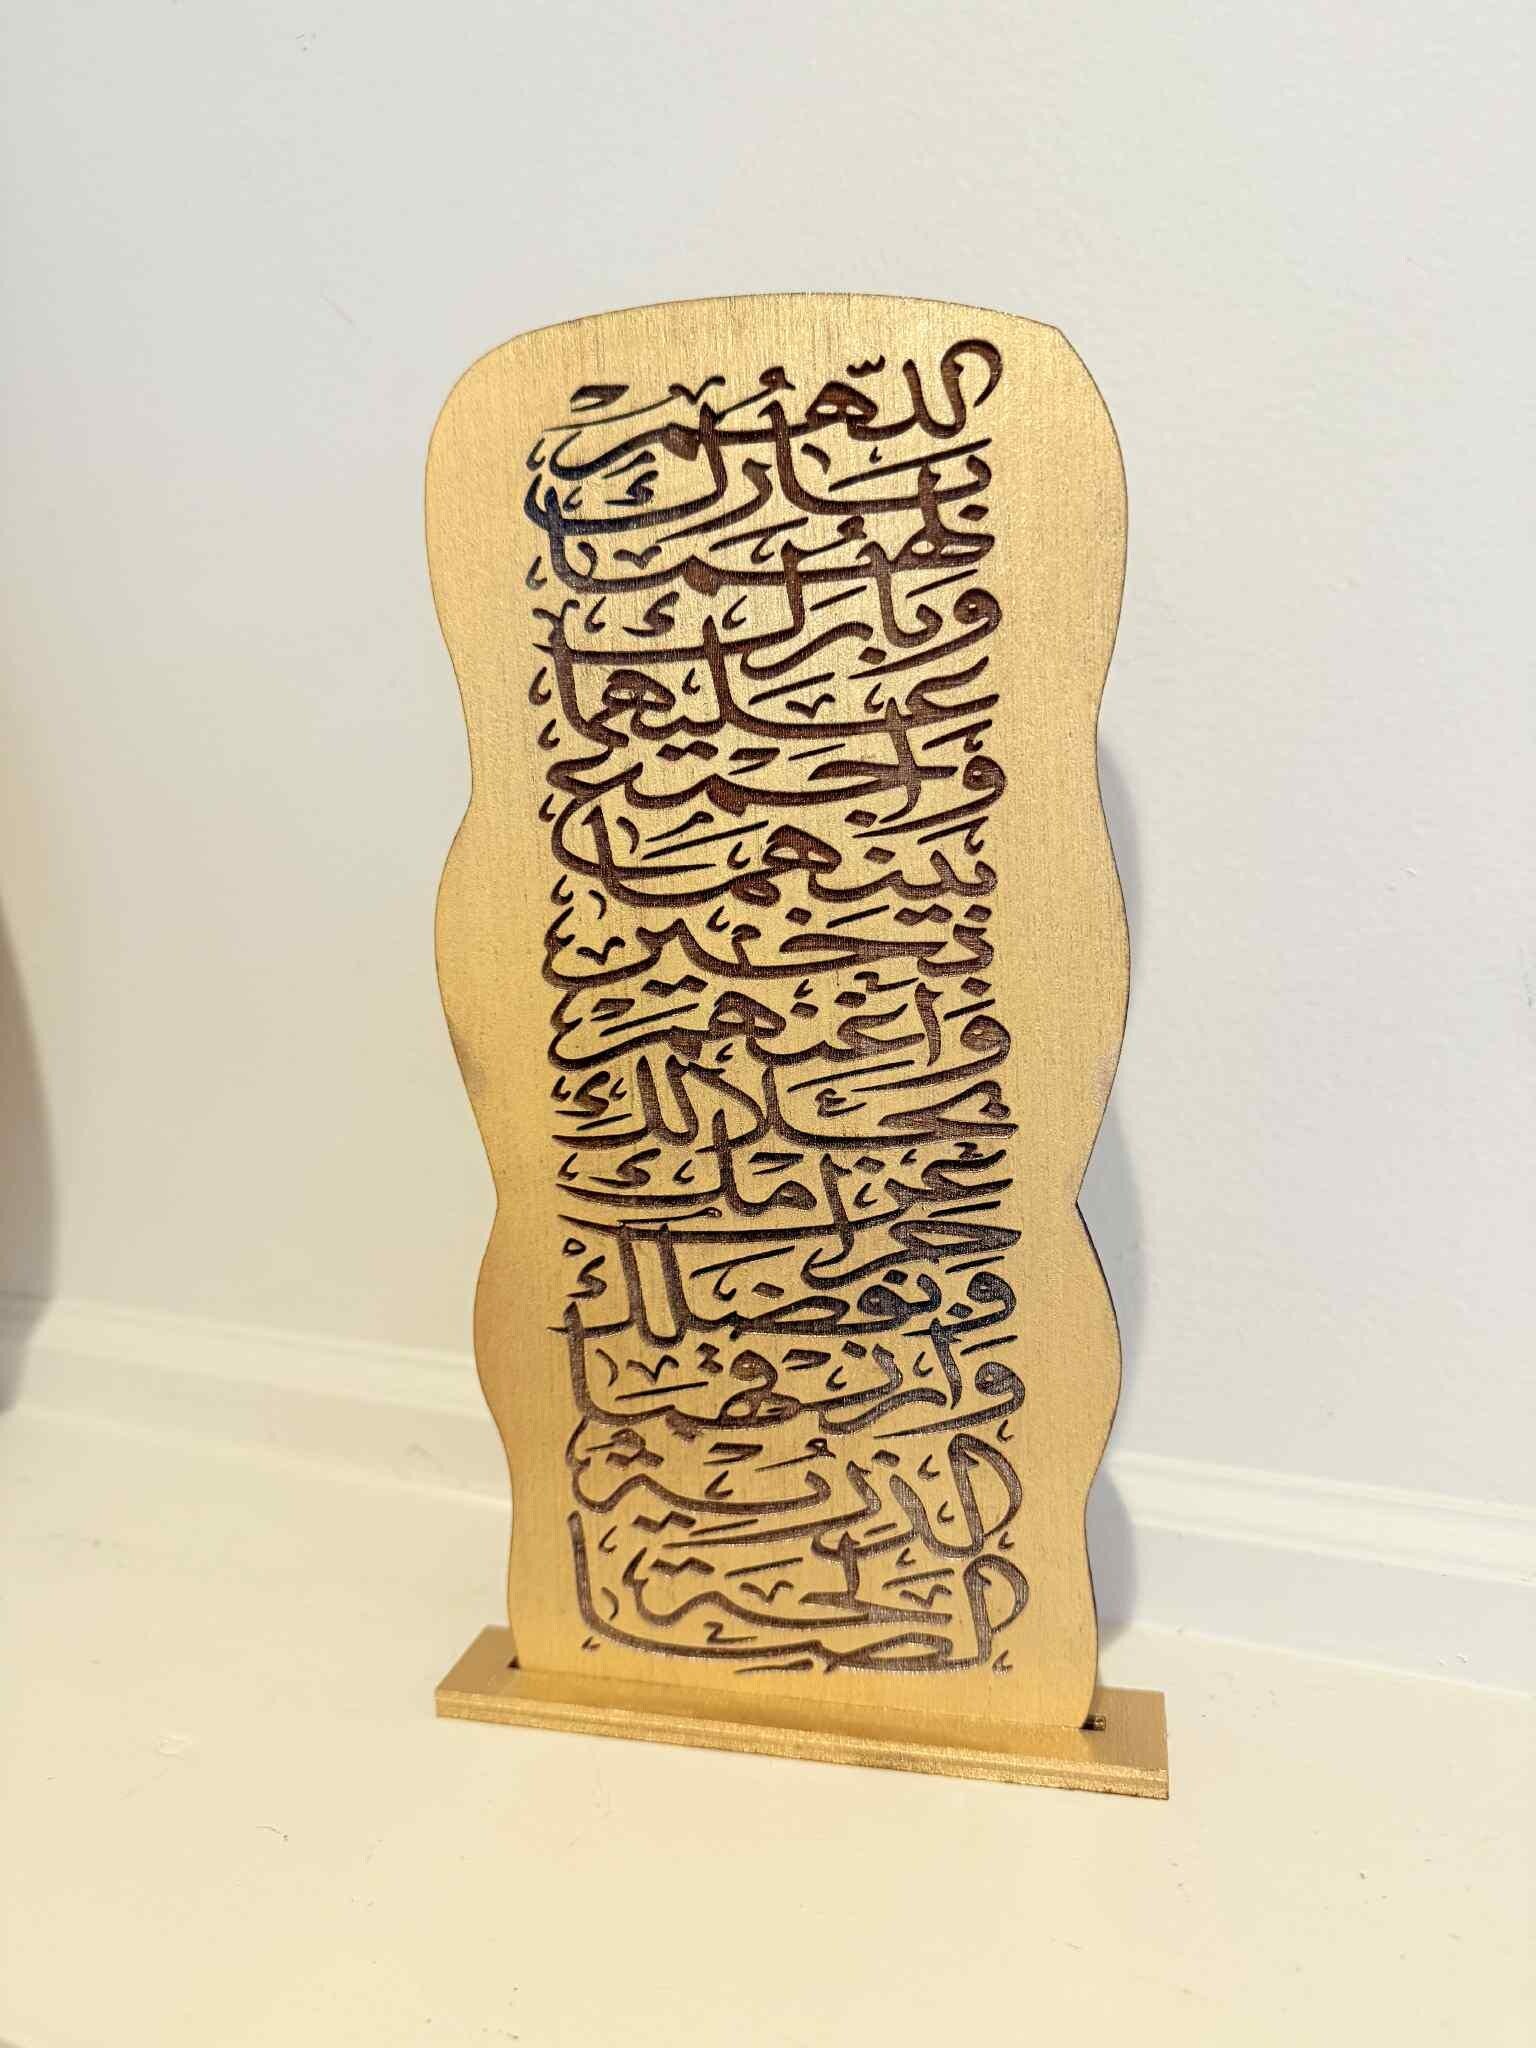 اللّهُمَّ
بَارِكْ
لَهُمَا
وَبَارِكْ
عَلَيْهِمَا
وَاجْمَعْ
بَيْنَهُمَا
بِخَيْرٍ
وَاغْنِهِمْ
بِحَلَالِكَ
عَنْ حَرَامِكَ
وَبِفَضْلِكَ
وَارْزُقْهُمَا
الذُرِّيَّةَ
الصَّالِحَةَ